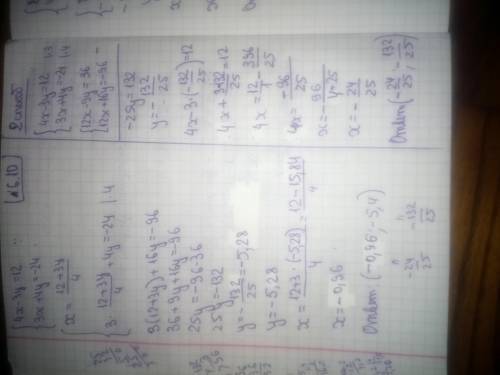 №6.10
{4x-3y=12
{3x+4y=-24
x = (12+3y)/4
{3 · (12+3y)/4 + 4y = -24 | · 4
3(12+3y)+16y=-96
36+9y+16y=-96
25y=-96-36
25y=-132
y=-132/25=-5,28
y=-5,28
x = (12+3·(-5,28))/4 = (12-15,84)/4
x=-0,96
Ответ (-0,96; -5,4)
-24/25
-132/25
2 способ
{4x-3y=12 | ·3
{3x+4y=-24 | ·4
{12x-9y=36
{12x+16y=-96 -
-25y=132
y=-132/25
4x-3·(-132/25)=12
4x+(3·132)/25=12
4x=12/1-396/25
4x=-96/25
x=-96/(4·25)
x=-24/25
Ответ(-24/25; -132/25)